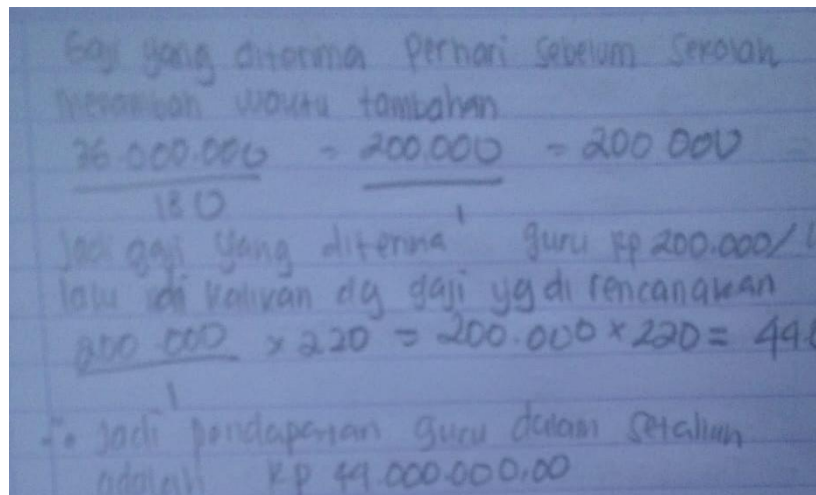 Gaji yang diterima Perhari sebelum sekolah
menambah waktu tambahan
36.000.000 = 200.000 = 200 000
180 1
Jadi gaji yang diterima guru Rp 200.000/
lalu di kalikan dg gaji yg di rencanakan
200 000 x 220 = 200.000 x 220 = 44.
1
∴ Jadi pendapatan guru dalam setahun
adalah Rp 44.000.000,00